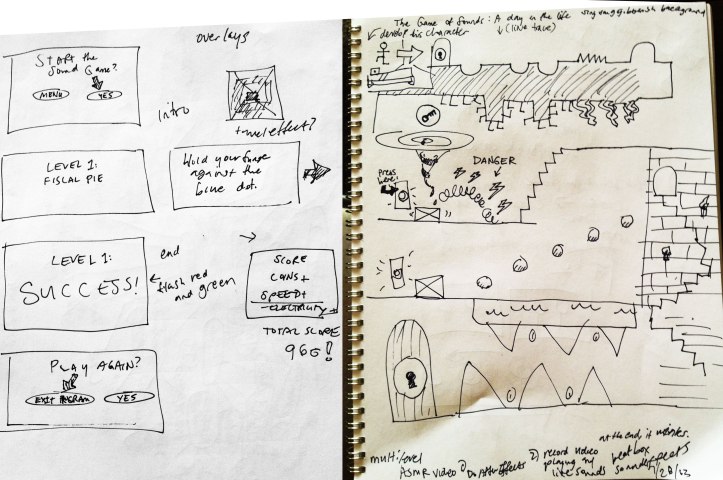 overlays
START the
Sound Game?
MENU
YES
Intro
tunnel effect?
LEVEL 1:
FISCAL PIE
Hold your
against the
blue dot.
LEVEL 1:
SUCCESS!
end
flash red
and green
SCORE
COINS +
SPEED +
TOTAL SCORE
960!
PLAY AGAIN?
EXIT PROGRAM
YES
The Game of Sounds: A day in the life
background
develop his character
(like tale)
Press
here!
DANGER
at the end, it
multilevel
ASMR video
① Do After Effects
2) record video
playing w/
like sounds
beat box
sound effects
1/28/23